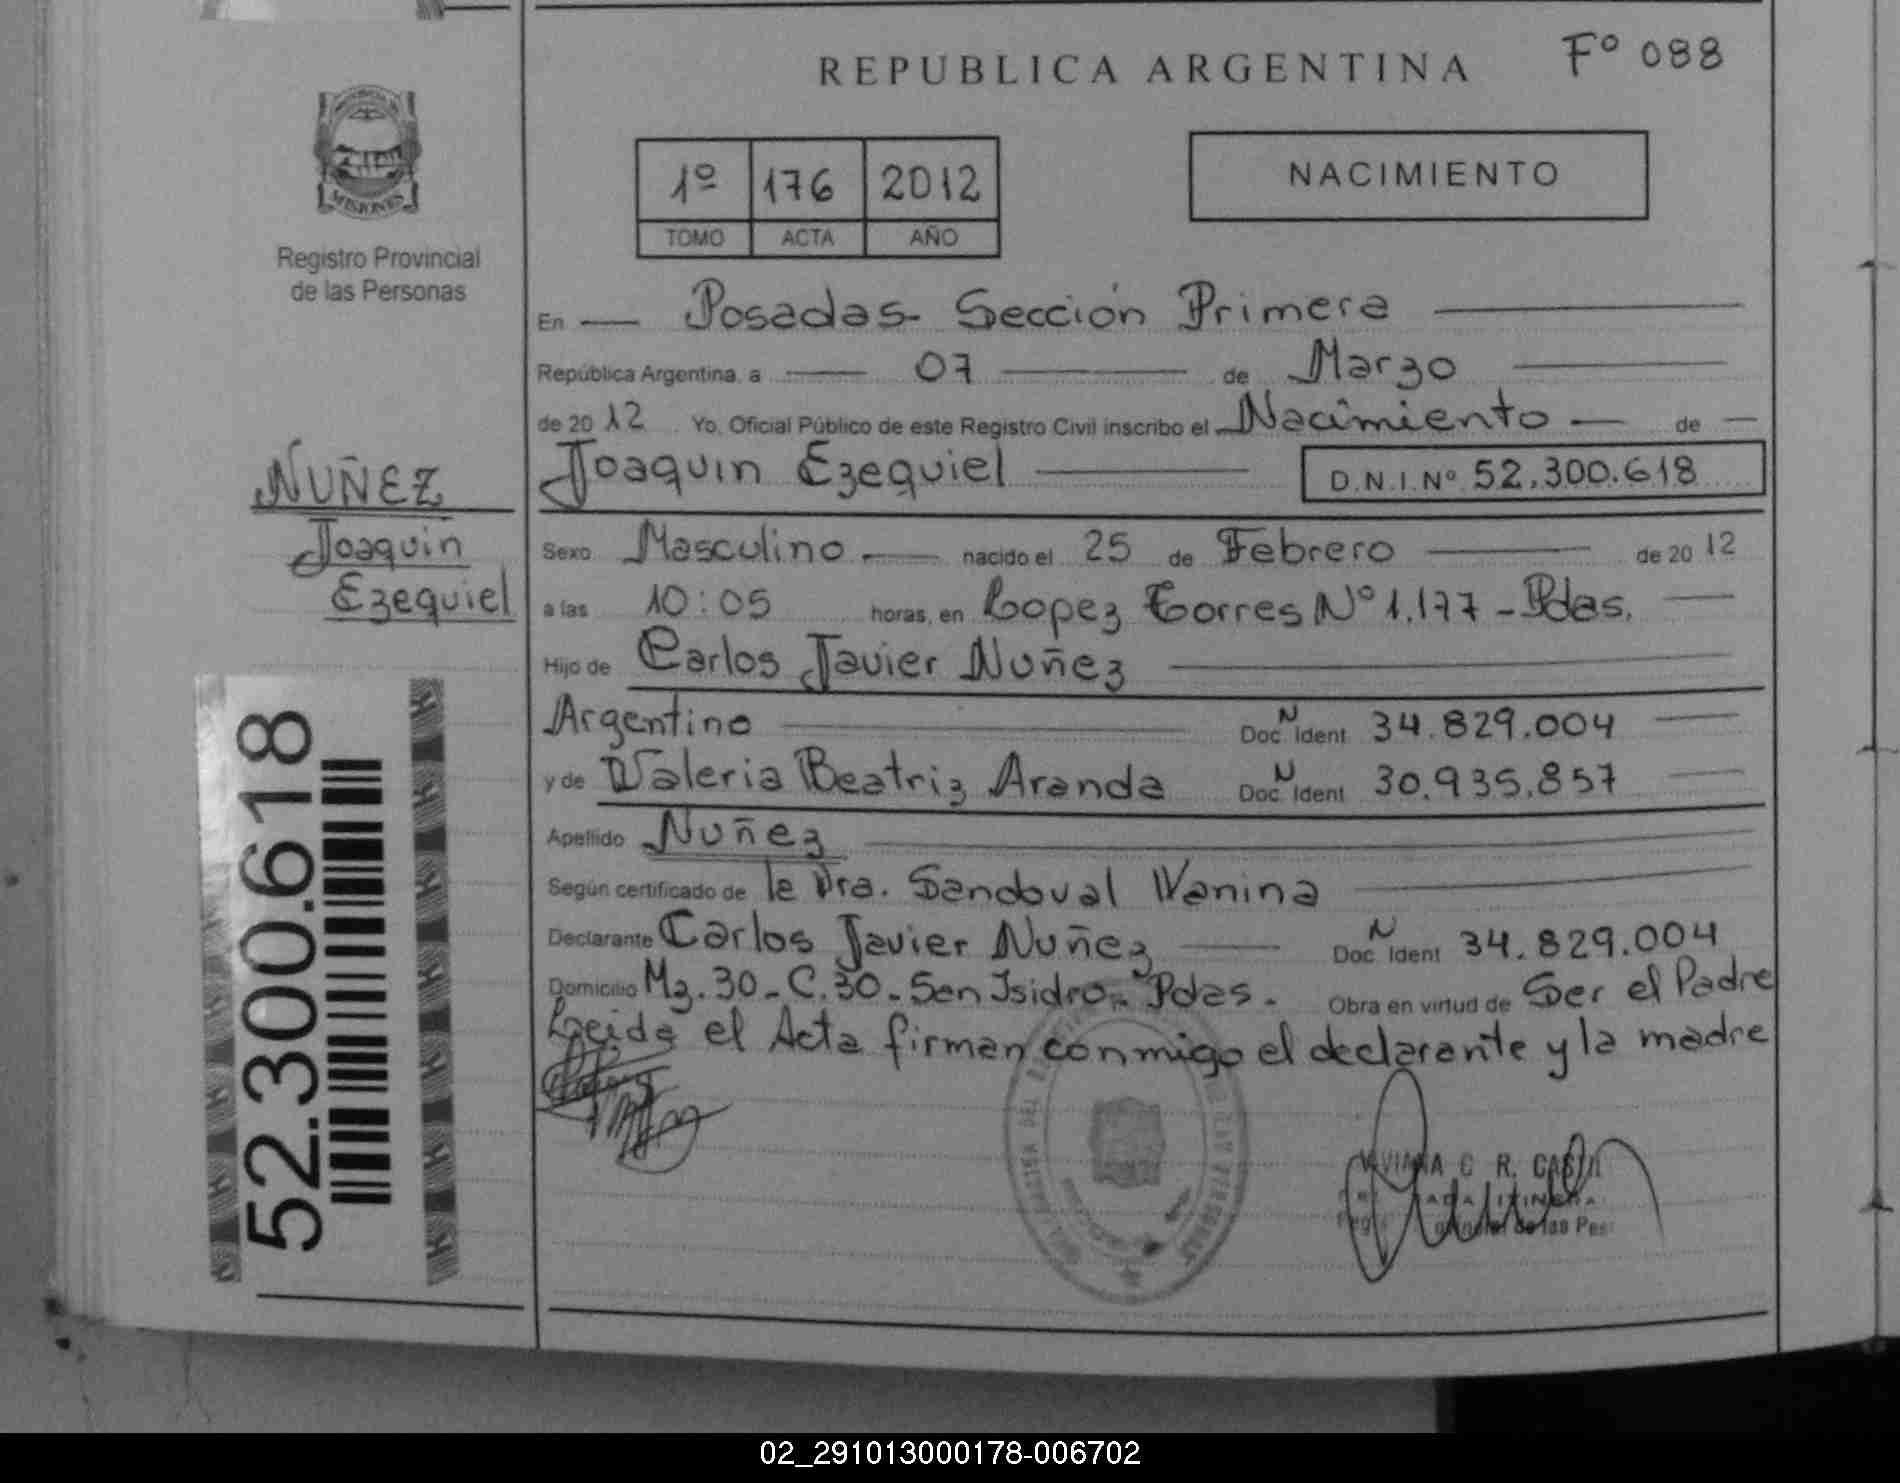 REPUBLICA ARGENTINA
Fº 088
MISIONES
Registro Provincial
de las Personas
1º 176 2012
TOMO ACTA AÑO
NACIMIENTO
En Posadas Sección Primera
República Argentina, a 07 de Marzo
de 2012 Yo, Oficial Público de este Registro Civil inscribo el Nacimiento de
Joaquin Ezequiel D.N.I.Nº 52.300.618
NUÑEZ
Joaquin
Ezequiel
Sexo Masculino nacido el 25 de Febrero de 2012
a las 10:05 horas, en Lopez Torres Nº 1.177 - Pdas.
Hijo de Carlos Javier Nuñez
Argentino Doc. N Ident 34.829.004
y de Valeria Beatriz Aranda Doc. N Ident 30.935.857
Apellido Nuñez
Según certificado de la Dra. Sandoval Vanina
Declarante Carlos Javier Nuñez Doc. N Ident 34.829.004
Domicilio Mz. 30 - C. 30 - San Isidro - Pdas. Obra en virtud de Ser el Padre
Leida el Acta firman conmigo el declarante y la madre
52.300.618
R.
de las
02_291013000178-006702